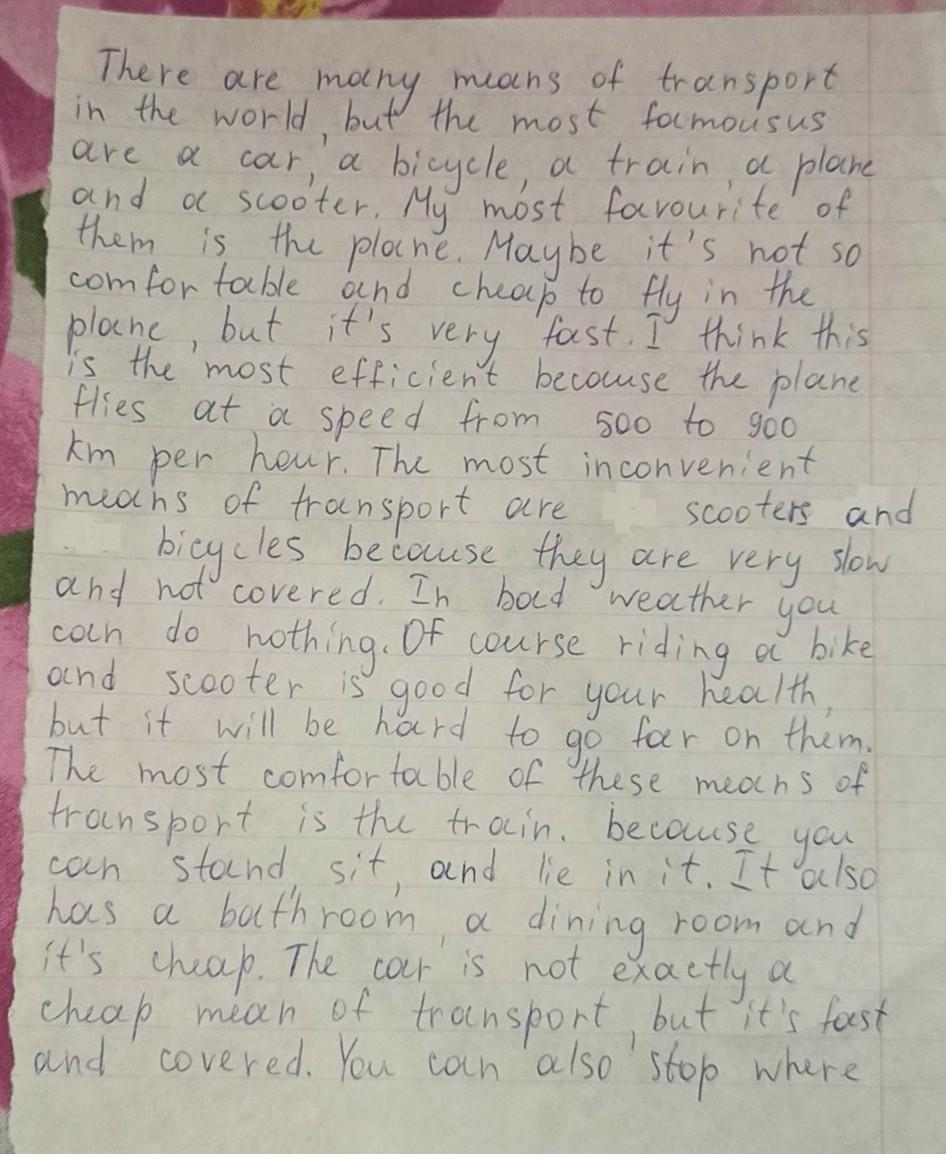 There are many means of transport
in the world, but the most famousus
are a car, a bicycle, a train, a plane
and a scooter. My most favourite of
them is the plane. Maybe it's not so
comfortable and cheap to fly in the
plane, but it's very fast. I think this
is the most efficient because the plane
flies at a speed from 500 to 900
km per hour. The most inconvenient
means of transport are scooters and
bicycles because they are very slow
and not covered. In bad weather you
can do nothing. Of course riding a bike
and scooter is good for your health,
but it will be hard to go far on them.
The most comfortable of these means of
transport is the train. because you
can stand, sit, and lie in it. It also
has a bathroom, a dining room and
it's cheap. The car is not exactly a
cheap mean of transport, but it's fast
and covered. You can also stop where